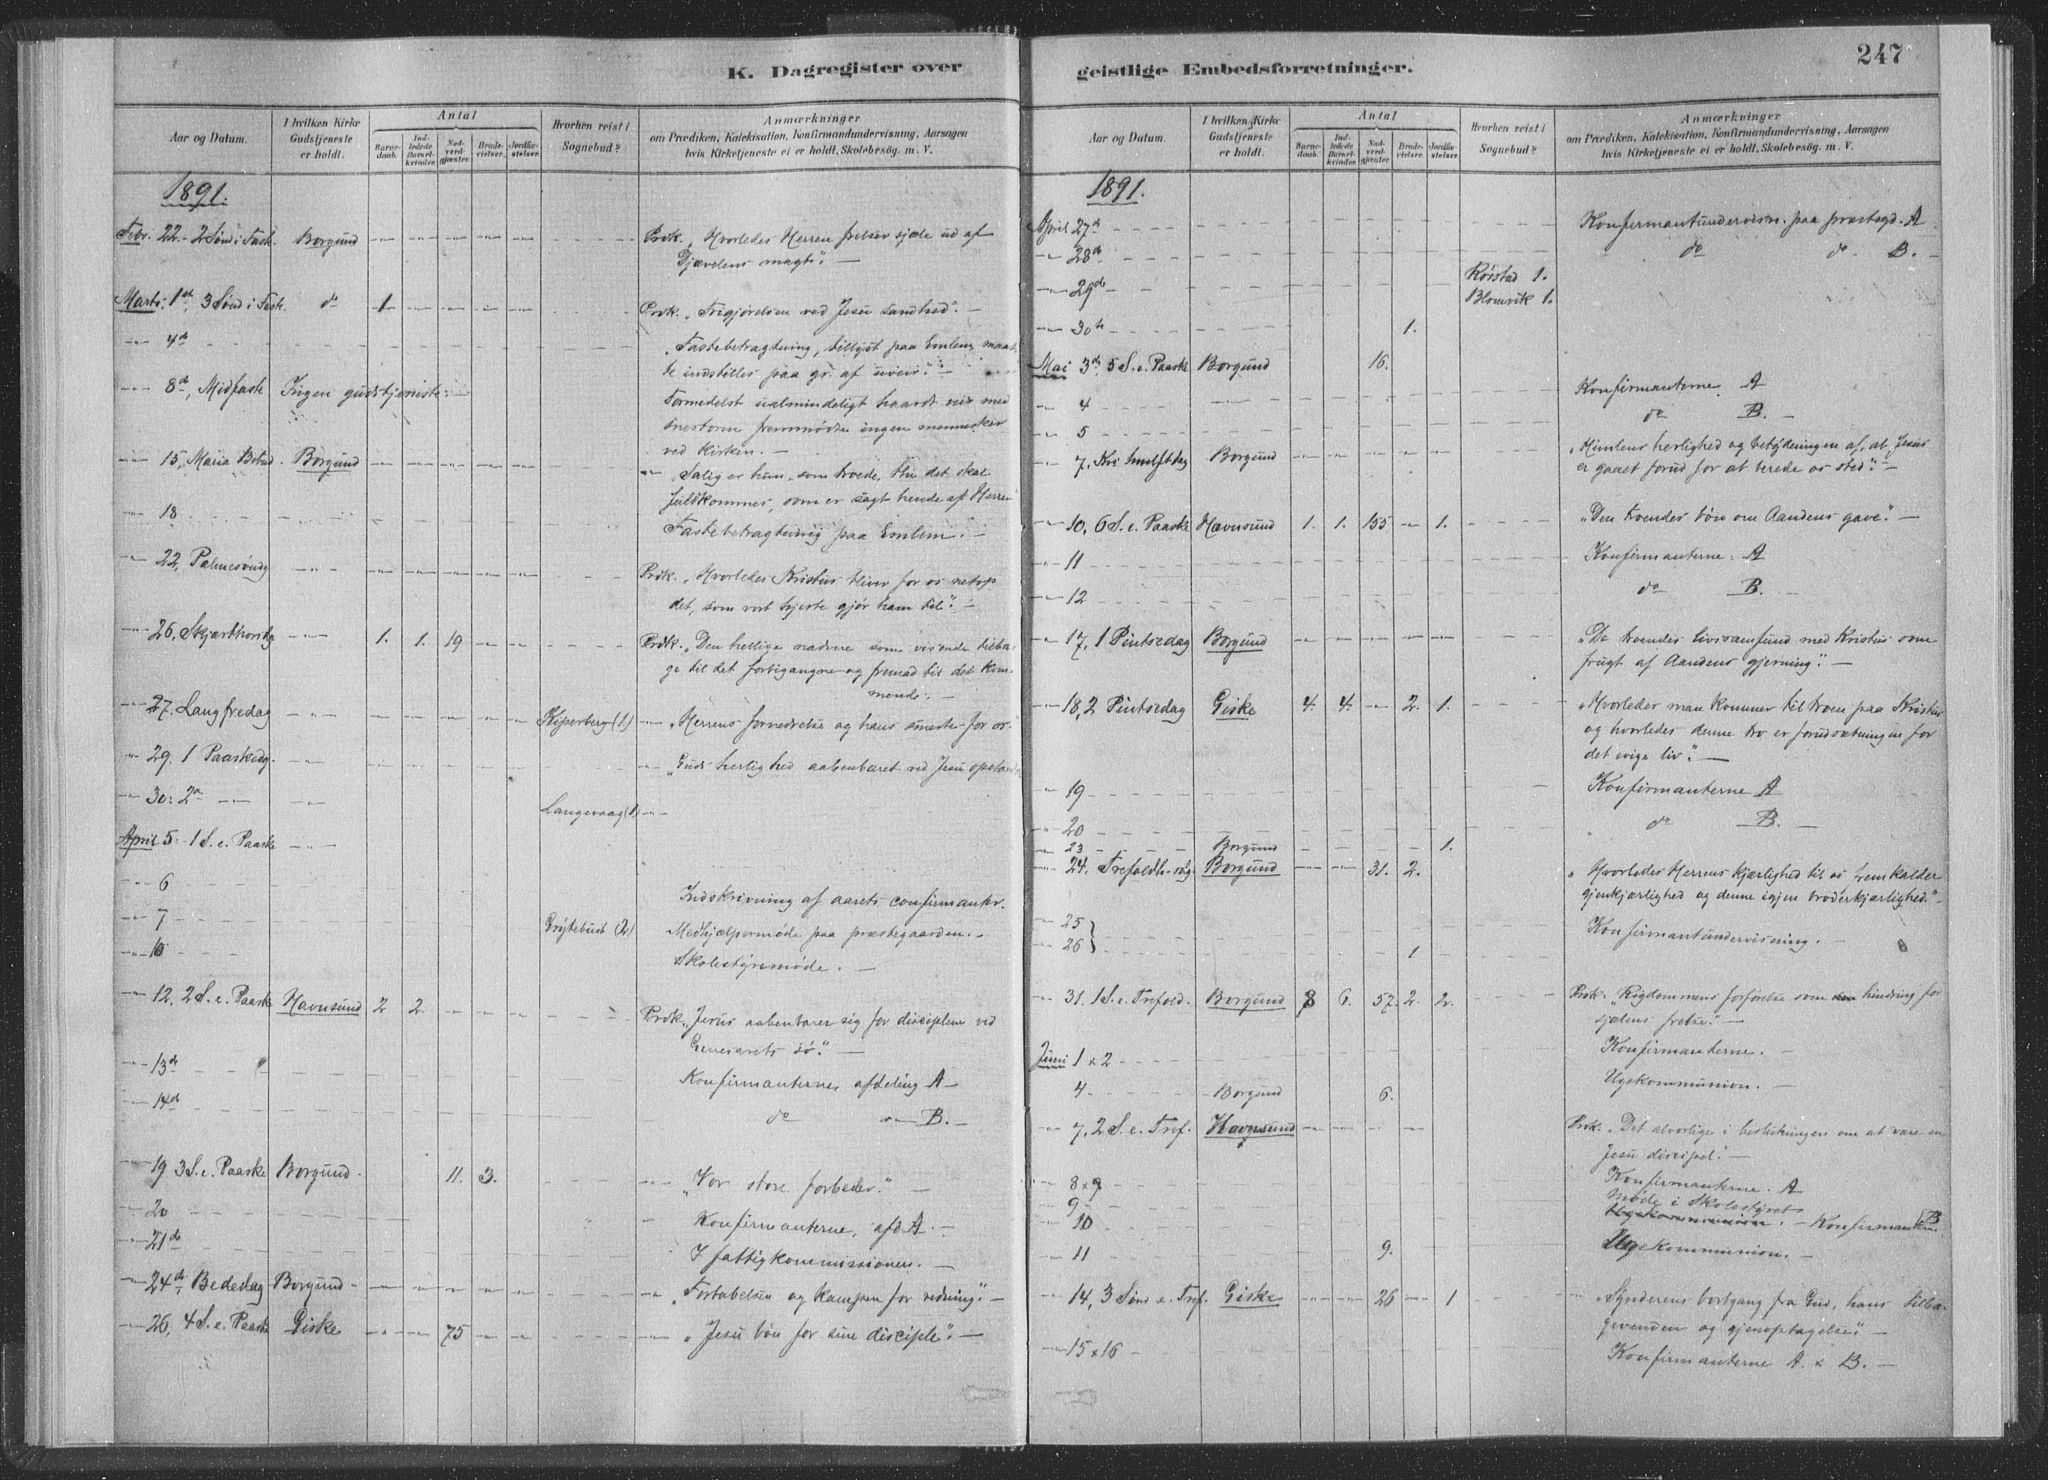 K. Dagregister over
Aar og Datum.
I hvilken Kirke Gudstjeneste er holdt.
Antal
Barnedaab.
Indledede Barselkvinder.
Nadverdgjæster.
Brudevielser.
Jordfæstelser.
Hvorhen reist i Sognebud?
Anmærkninger
om Prædiken, Katekisation, Konfirmandundervisning, Aarsagen
hvis Kirketjeneste ei er holdt, Skolebesøg. m. V.
1891.
Febr. 22 - 2 Sønd i Fast. Borgund Prdk. "Hvorledes Herren frelser sjæle ud af
Djævelens magt". —
Marts 1st, 3 Sønd i Fast. do 1 Prdk. "Frigjørelsen ved Jesu sandhed". —
4de Fastebetragtning, tillyst paa Emlem, maat-
te indstilles paa gr. af uveir. —
8de, Midfaste Ingen gudstjeneste. — Formedelst ualmindeligt haardt veir med
snestorm fremmødte ingen mennesker
ved kirken. —
15, Maria Bebud. Borgund "Salig er hun, som troede, thi det skal
fuldkommes, som er sagt hende af Herren
18 Fastebetragtning paa Emlem. —
22, Palmesøndg Prdk. "Hvorledes Kristus bliver for os netop
det, som vort hjerte gjør ham til". —
26, Skjærthorsdg 1. 1. 19 Prdk. "Den hellige nadvere som visende tilba-
ge til det fortigangne og fremad til det kom-
mende. —
27. Langfredag Kiperberg (1) "Herrens fornedrelse og hans smerte for os.
29. 1 Paaskedg. "Guds herlighed aabenbaret ved Jesu opstand
30: 2n Langevaag (1)
April 5 - 1 S. e. Paaske
6 Indskrivning af aarets confirmanter.
7 Grøtebust (2) Medhjælpermøde paa præstegaarden. -
10 Skolestyresmøde. —
12, 2 S. e. Paaske Havnsund 2 2. Prdk. "Jesus aabenbarer sig for disciplene ved
Genesarets sø". —
13de Konfirmanterne, afdeling A —
14de do B. —
19 3 S. e. Paaske Borgund. 11. 3. "Vor store forbeder". —
20 Konfirmanterne, afd. A. —
21de I fattigkommissionen. —
24de Bededag Borgund "Fortabelsen og kampen for redning". —
26, 4 S. e. Paaske Giske 75 "Jesu bøn for sine disciple". —
geistlige Embedsforretninger.
247
Aar og Datum.
I hvilken Kirke Gudstjeneste er holdt.
Antal
Barnedaab.
Indledede Barselkvinder.
Nadverdgjæster.
Brudevielser.
Jordfæstelser.
Hvorhen reist i Sognebud?
Anmærkninger
om Prædiken, Katekisation, Konfirmandundervisning, Aarsagen
hvis Kirketjeneste ei er holdt, Skolebesøg m. V.
1891.
April 27de Konfirmantundervisn. paa præstegd. A
28de do do B. —
29de Røistad 1.
Blomvik 1.
30te 1.
Mai 3de 5 S. e. Paaske Borgund 16.
4 Konfirmanterne A
5 do B. —
7. Kri himlftdag Borgund "Himlens herlighed og betydningen af, at Jesus
er gaaet forud for at berede os sted". —
10, 6 S. e. Paaske Havnsund 1. 1. 155 1. "Den troendes bøn om Aandens gave". —
11 Konfirmanterne. A
12 do B. —
17, 1 Pintsedag Borgund "De troendes livssamfund med Kristus som
frugt af Aandens gjerning". —
18, 2 Pintsedag Giske 4. 4. 2. 1. "Hvorledes man kommer til troen paa Kristus
og hvorledes denne tro er forudsætningen for
det evige liv". —
19 Konfirmanterne A
20 do B. —
23 Borgund 1.
24. Trefoldh-sdg. Borgund 31. 2. "Hvorledes Herrens kjærlighed til os fremkalder
gjenkjærlighed og denne igjen broderkjærlighed". -
25 Konfirmantundervisning. -
26 1
31. 1 S. e. Trefold. Borgund 8 6. 57. 2. 2. Prdk. "Rigdommens forførelse som hindring for
sjælens frelse". —
Juni 1 & 2 Konfirmanterne. —
4 Borgund 6. Ugekommunion. —
7, 2 S. e. Tref. Havnsund Prdk. "Det alvorlige i beslutningen om at være en
Jesu discipel". —
8 & 9 Konfirmanterne. A
9 Møde i Skolestyret
10 Ugekommunion. - Konfirmanterne B
11 9. Ugekommunion. —
14, 3 Sønd e. Tref. Giske 26 1 "Synderens bortgang fra Gud, hans tilba-
gevenden og gjenoptagelse". —
15 & 16 Konfirmanterne A. & B. —